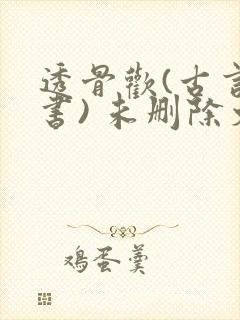 透骨歡(古言
書) 未删除
鸡蛋羹